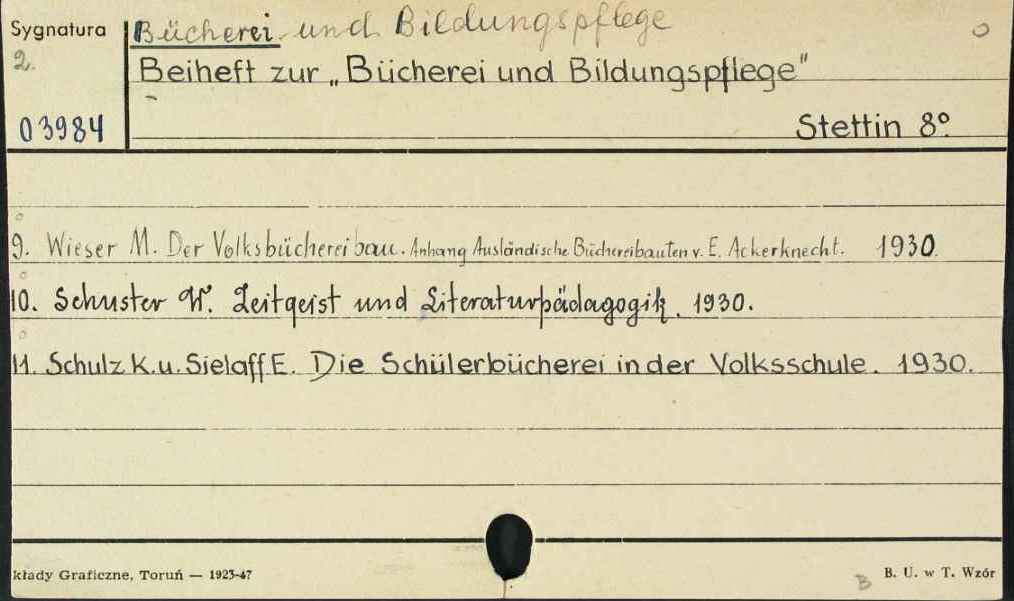 Sygnatura Bücherei und Bildungspflege
2. Beiheft zur „Bücherei und Bildungspflege"
03984 Stettin 8º
9. Wieser M. Der Volksbüchereibau. Anhang Ausländische Büchereibauten v. E. Ackerknecht. 1930.
10. Schuster W. Zeitgeist und Literaturpädagogik. 1930.
11. Schulz K. u. Sielaff E. Die Schülerbücherei in der Volksschule. 1930.
kłady Graficzne, Toruń — 1923-47 B B. U. w T. Wzór